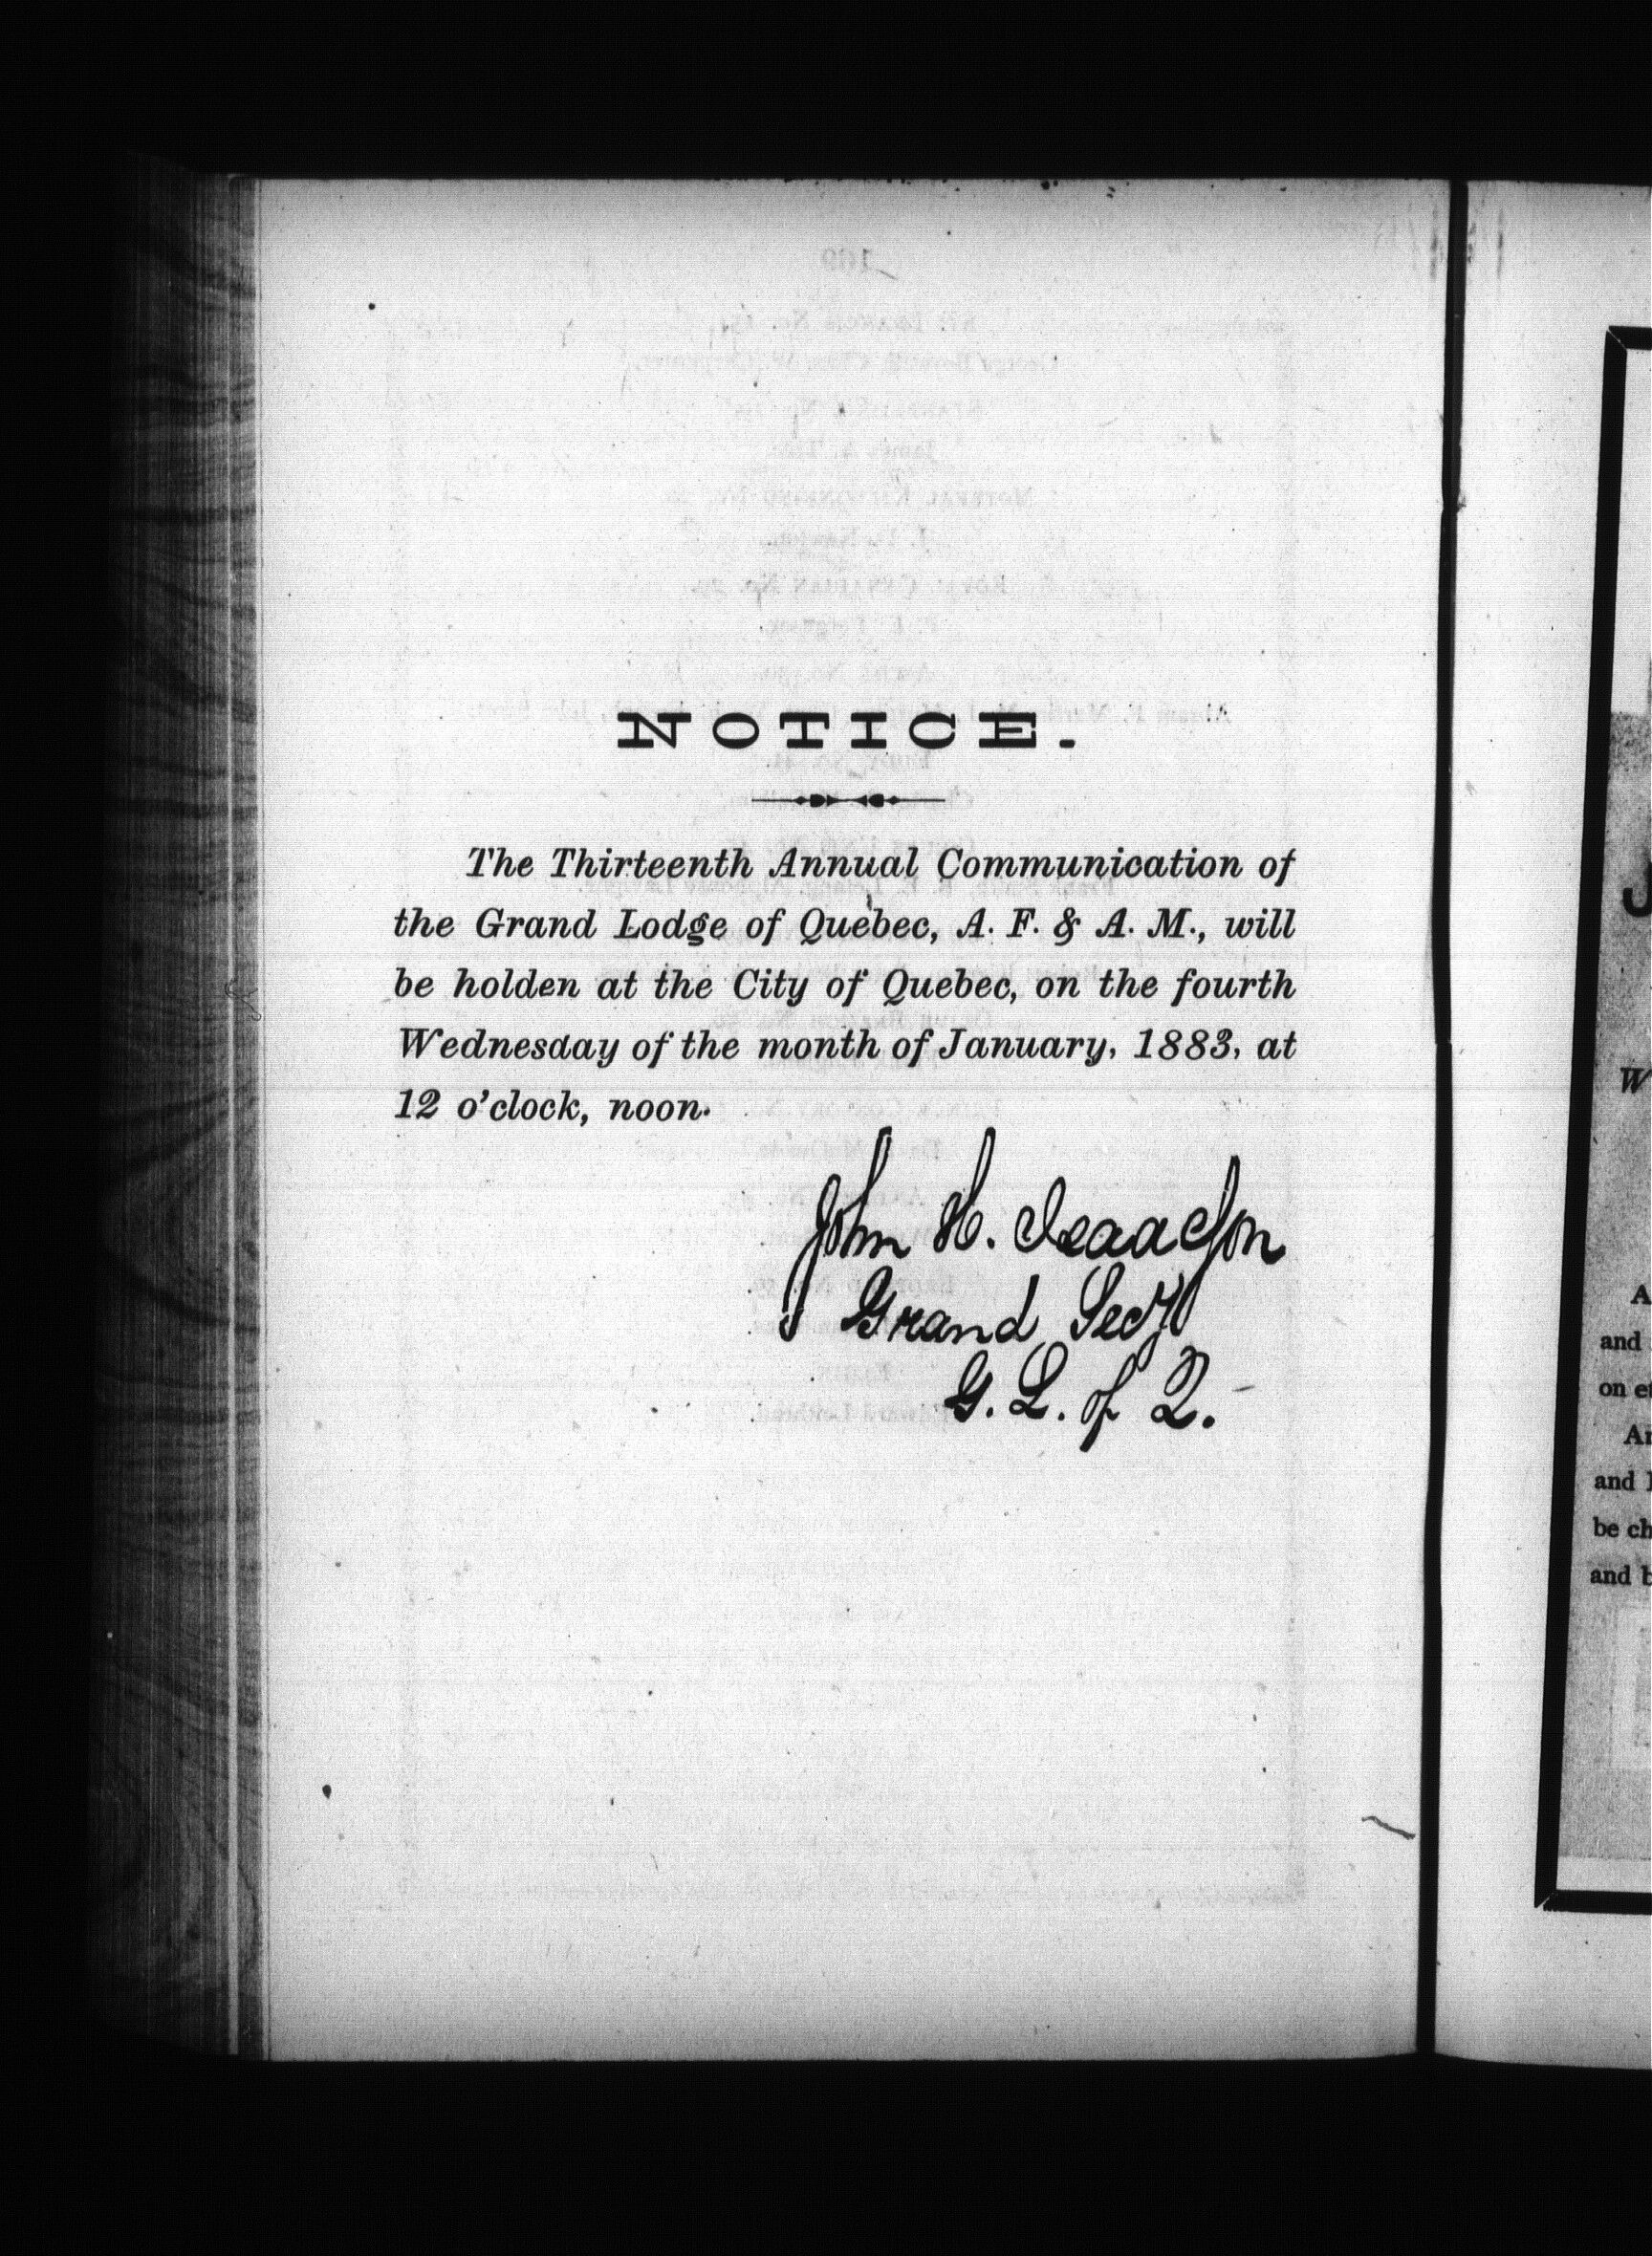 NOTICE.
The Thirteenth Annual Communication of
the Grand Lodge of Quebec, A. F. & A. M., will
be holden at the City of Quebec, on the fourth
Wednesday of the month of January, 1883, at
12 o'clock, noon.
John H. Isaacson
Grand Secy
G. L. of Q.
J
W
A
and
on et
An
and
be ch
and b